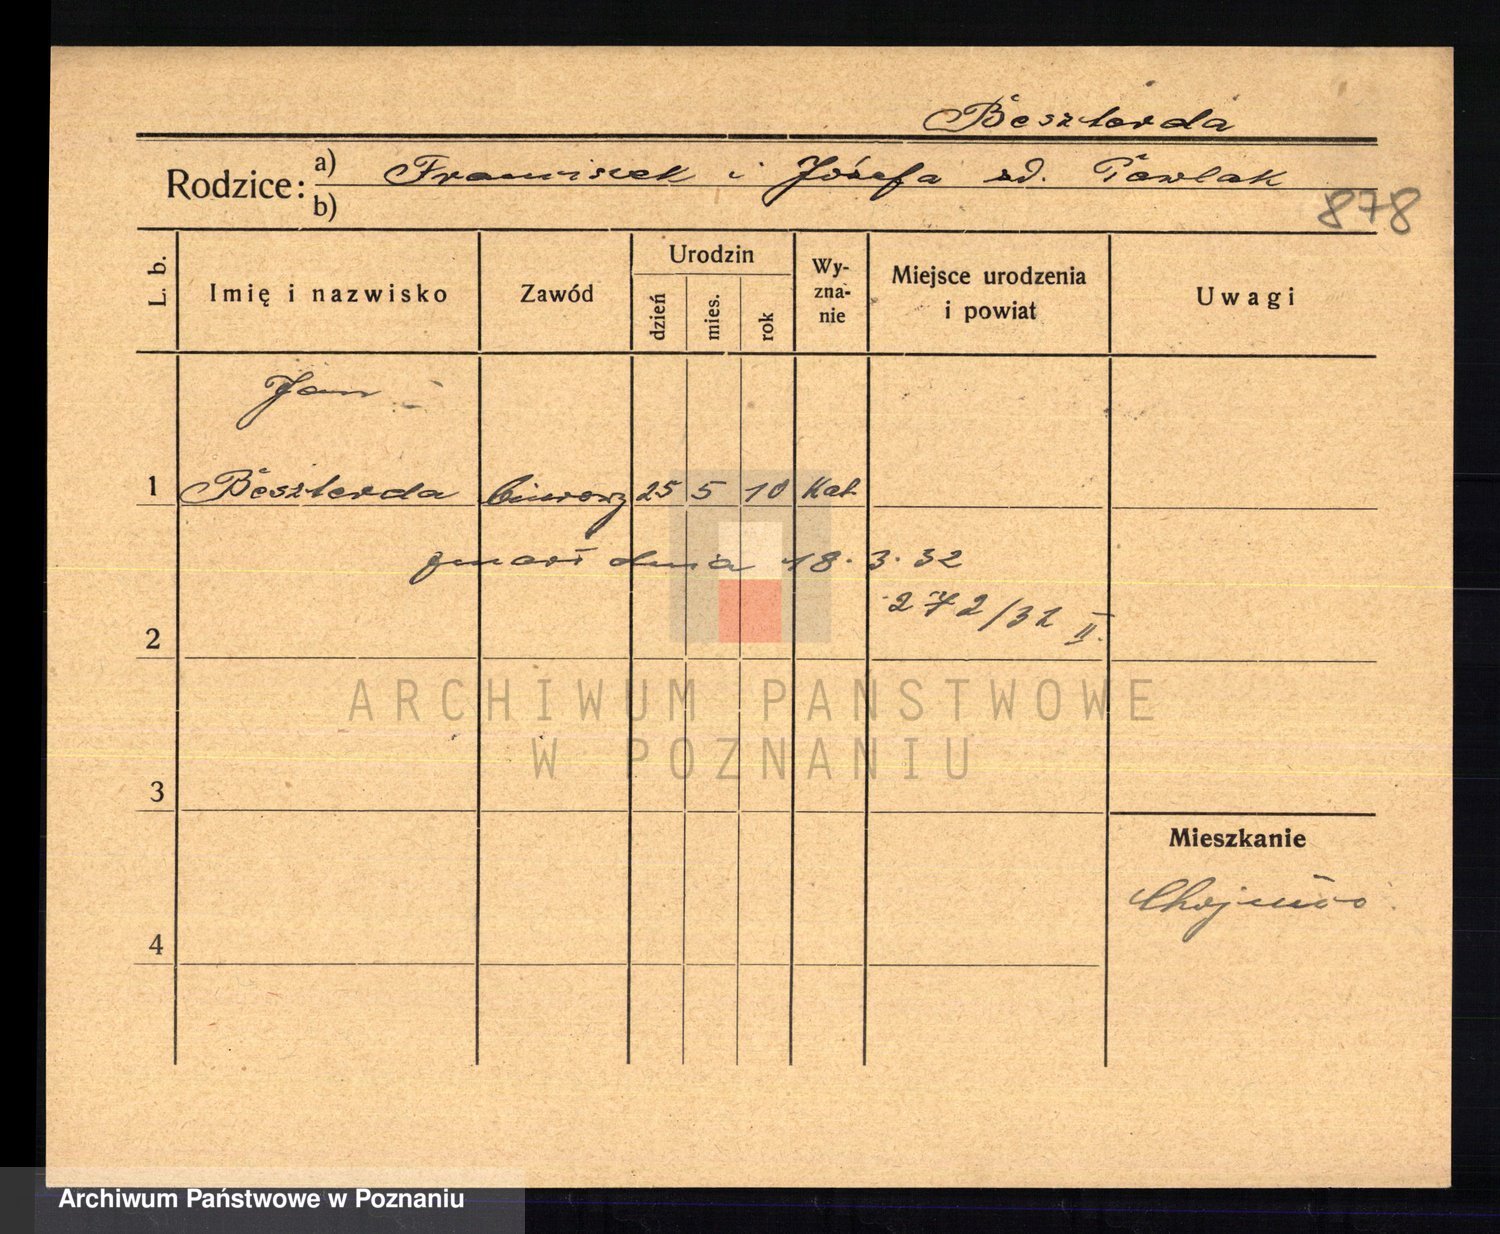 Beszterda
Rodzice: a) Franciszek i Józefa zd. Pawlak
b)
878
L. b.
Imię i nazwisko
Zawód
Urodzin
dzień
mies.
rok
Wy-
zna-
nie
Miejsce urodzenia
i powiat
Uwagi
Jan
1 Beszterda biurowy 25 5 10 Kat.
zmarł dnia 18. 3. 32
272/32 II.
2
ARCHIWUM PAŃSTWOWE
W POZNANIU
3
Mieszkanie
4
Archiwum Państwowe w Poznaniu